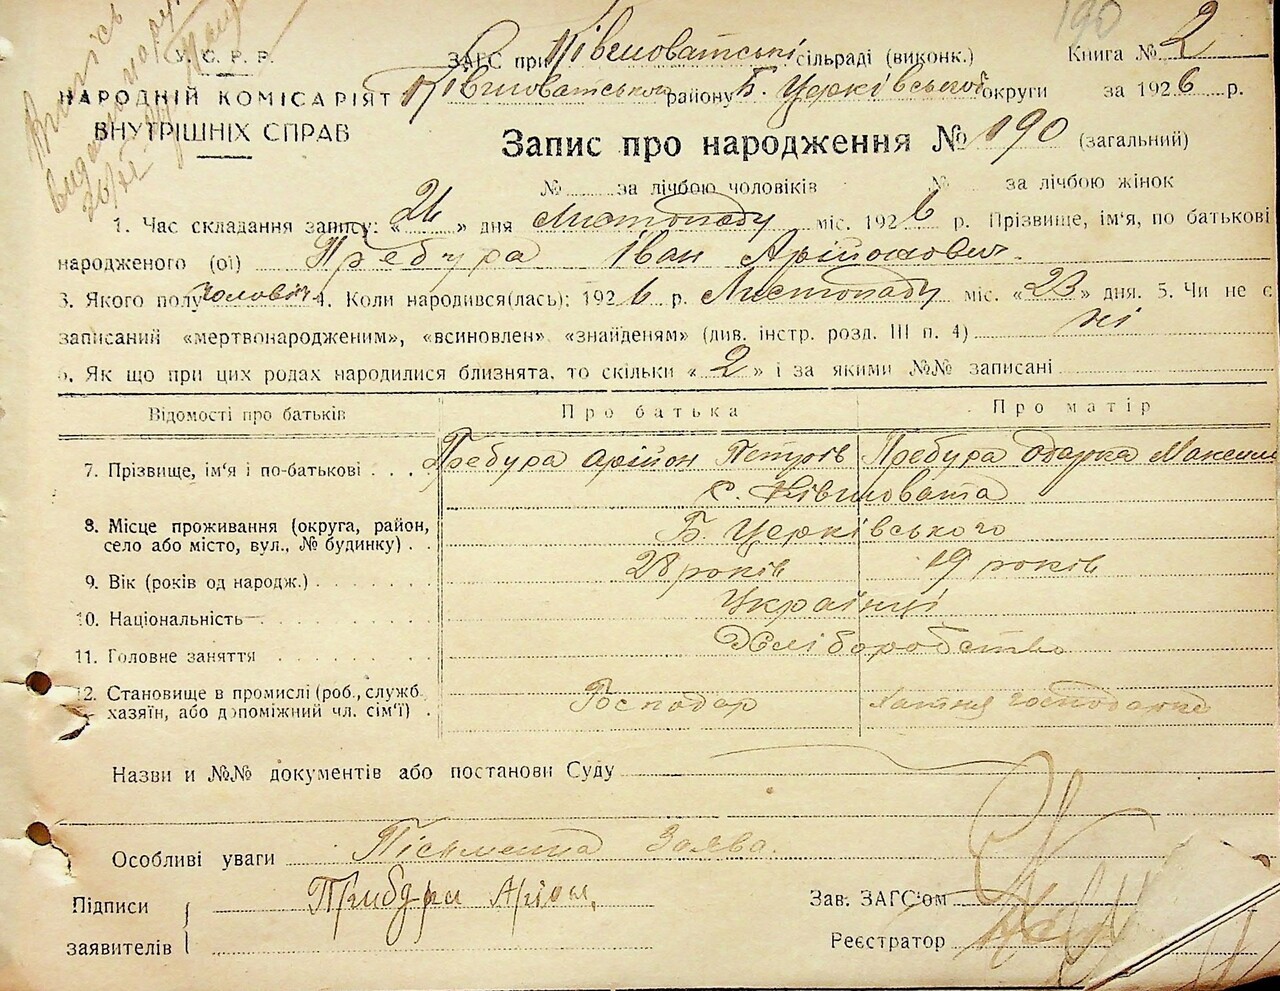 190
Витяг
видано
26/XI
У.С.Р.Р.
НАРОДНІЙ КОМІСАРІЯТ
ВНУТРІШНІХ СПРАВ
ЗАГС при Ківшоватські сільраді (виконк.) Книга № 2
Ківшоватського району Б. Церківської округи за 1926 р.
Запис про народження № 190 (загальний)
№ за лічбою чоловіків № за лічбою жінок
1. Час складання запису: «26» дня Листопаду міс. 1926 р. Прізвище, ім'я, по батькові
народженого (ої) Пребура Іван Арійонович.
3. Якого полу чоловіч 4. Коли народився(лась): 1926 р. Листопаду міс. «23» дня. 5. Чи не є
записаний «мертвонародженим», «всиновлен» «знайденям» (див. інстр. розд. III п. 4) ні
6. Як що при цих родах народилися близнята, то скільки «2» і за якими №№ записані
Відомості про батьків Про батька Про матір
7. Прізвище, ім'я і по-батькові Пребура Арійон Петрів Пребура Одарка Максим
с. Ківшовата
8. Місце проживання (округа, район,
село або місто, вул., № будинку) Б. Церківського
9. Вік (років од народж.) 28 років 19 років
10. Національність Українці
11. Головне заняття Хліборобство
12. Становище в промислі (роб., службб.
хазяїн, або допоміжний чл. сім'ї) Господар хатня господарка
Назви и №№ документів або постанови Суду
Особліві уваги Письменна Заява.
Підписи
заявителів
Прибура Аріон,
Зав. ЗАГС'ом
Реєстратор